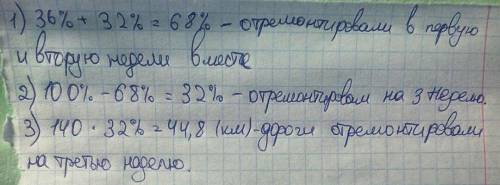 1) 36% + 32% = 68% - отремонтировали в первую
и вторую недели вместе
2) 100% - 68% = 32% - отремонтировали на 3 неделю.
3) 140 · 32% = 44,8 (км) - дороги отремонтировали
на третью неделю.